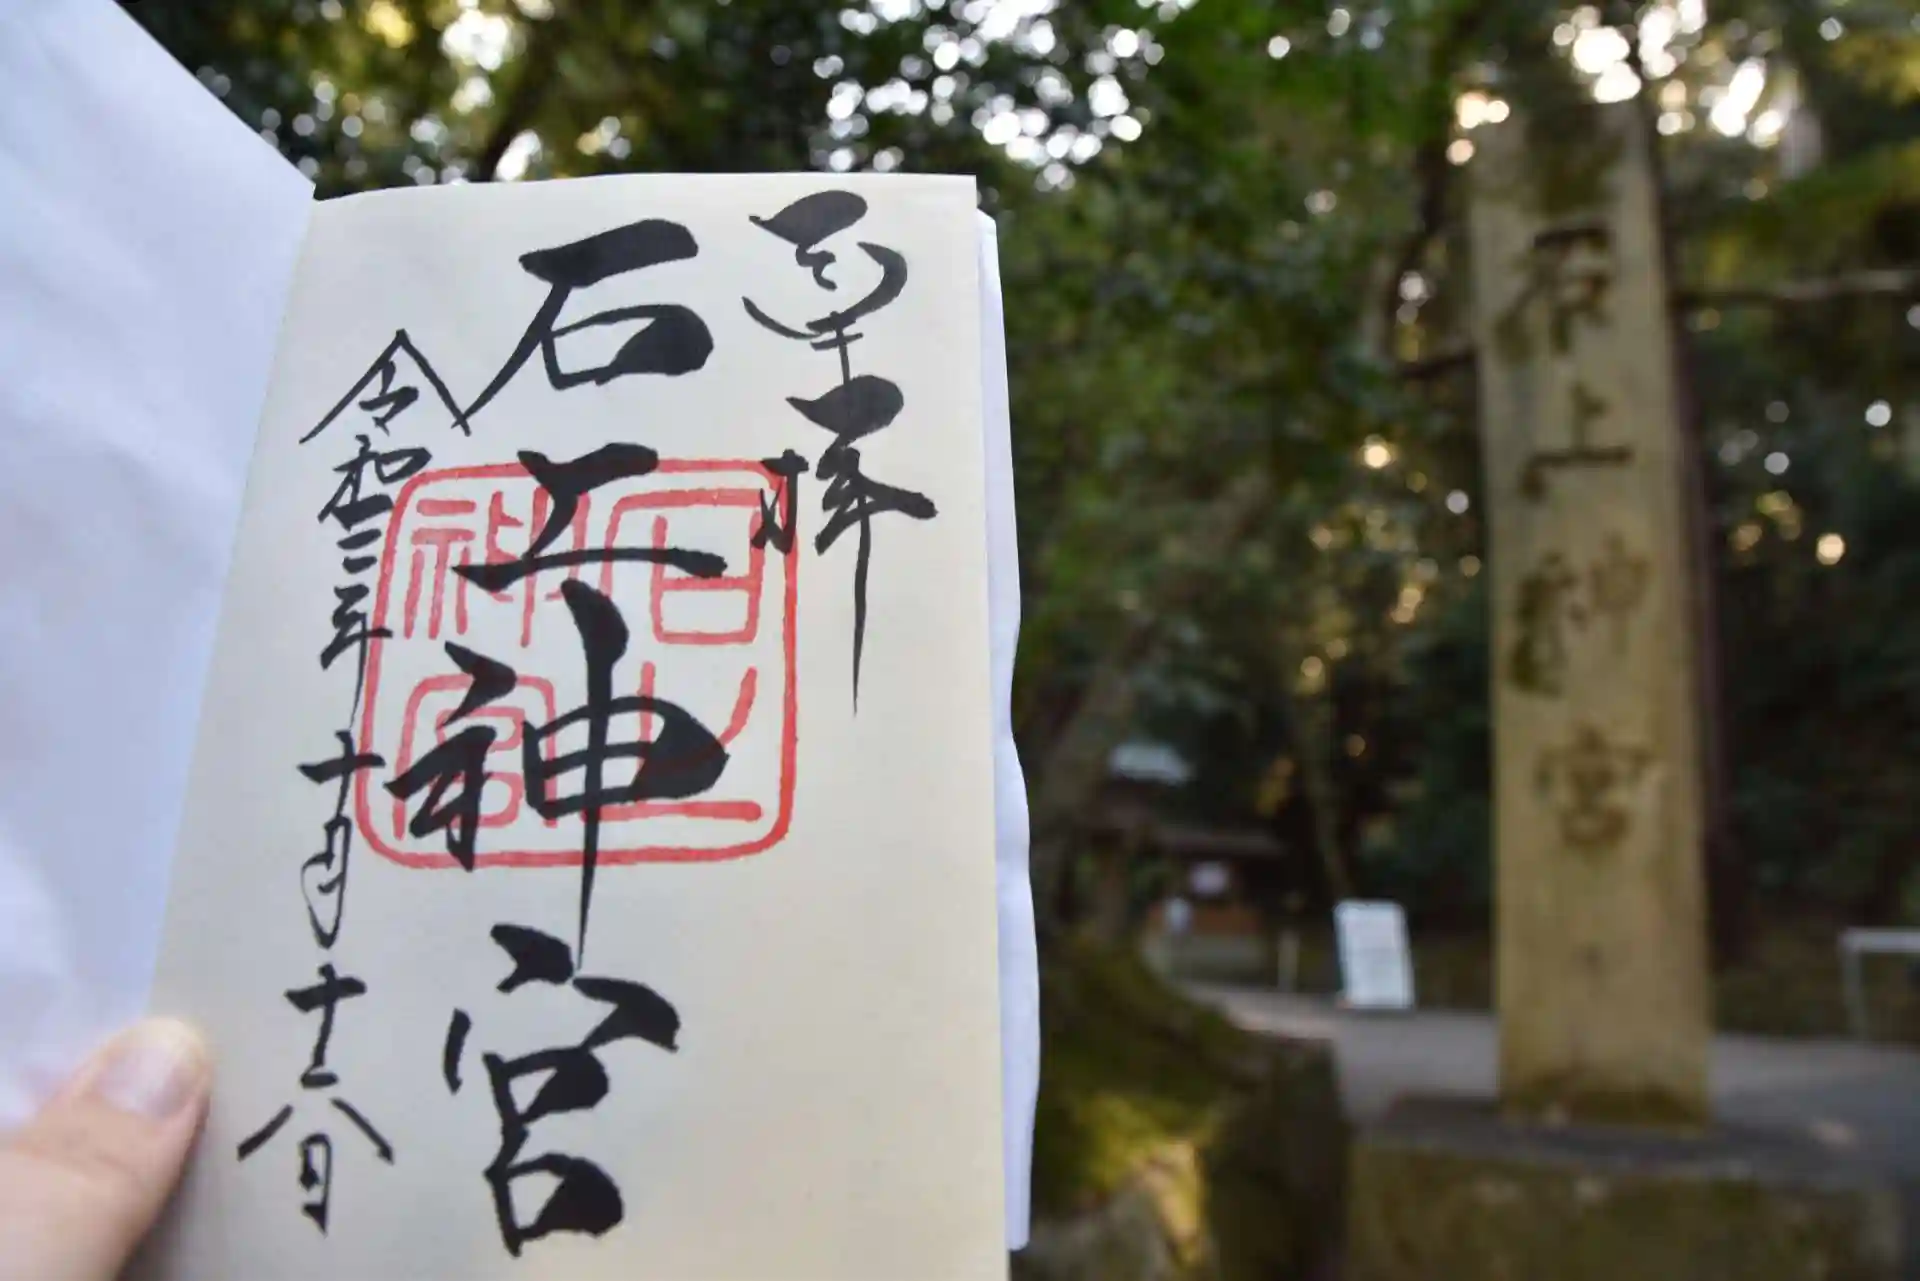 奉拝
石上神宮
令和二年十月十六日
石上神宮
石上神宮